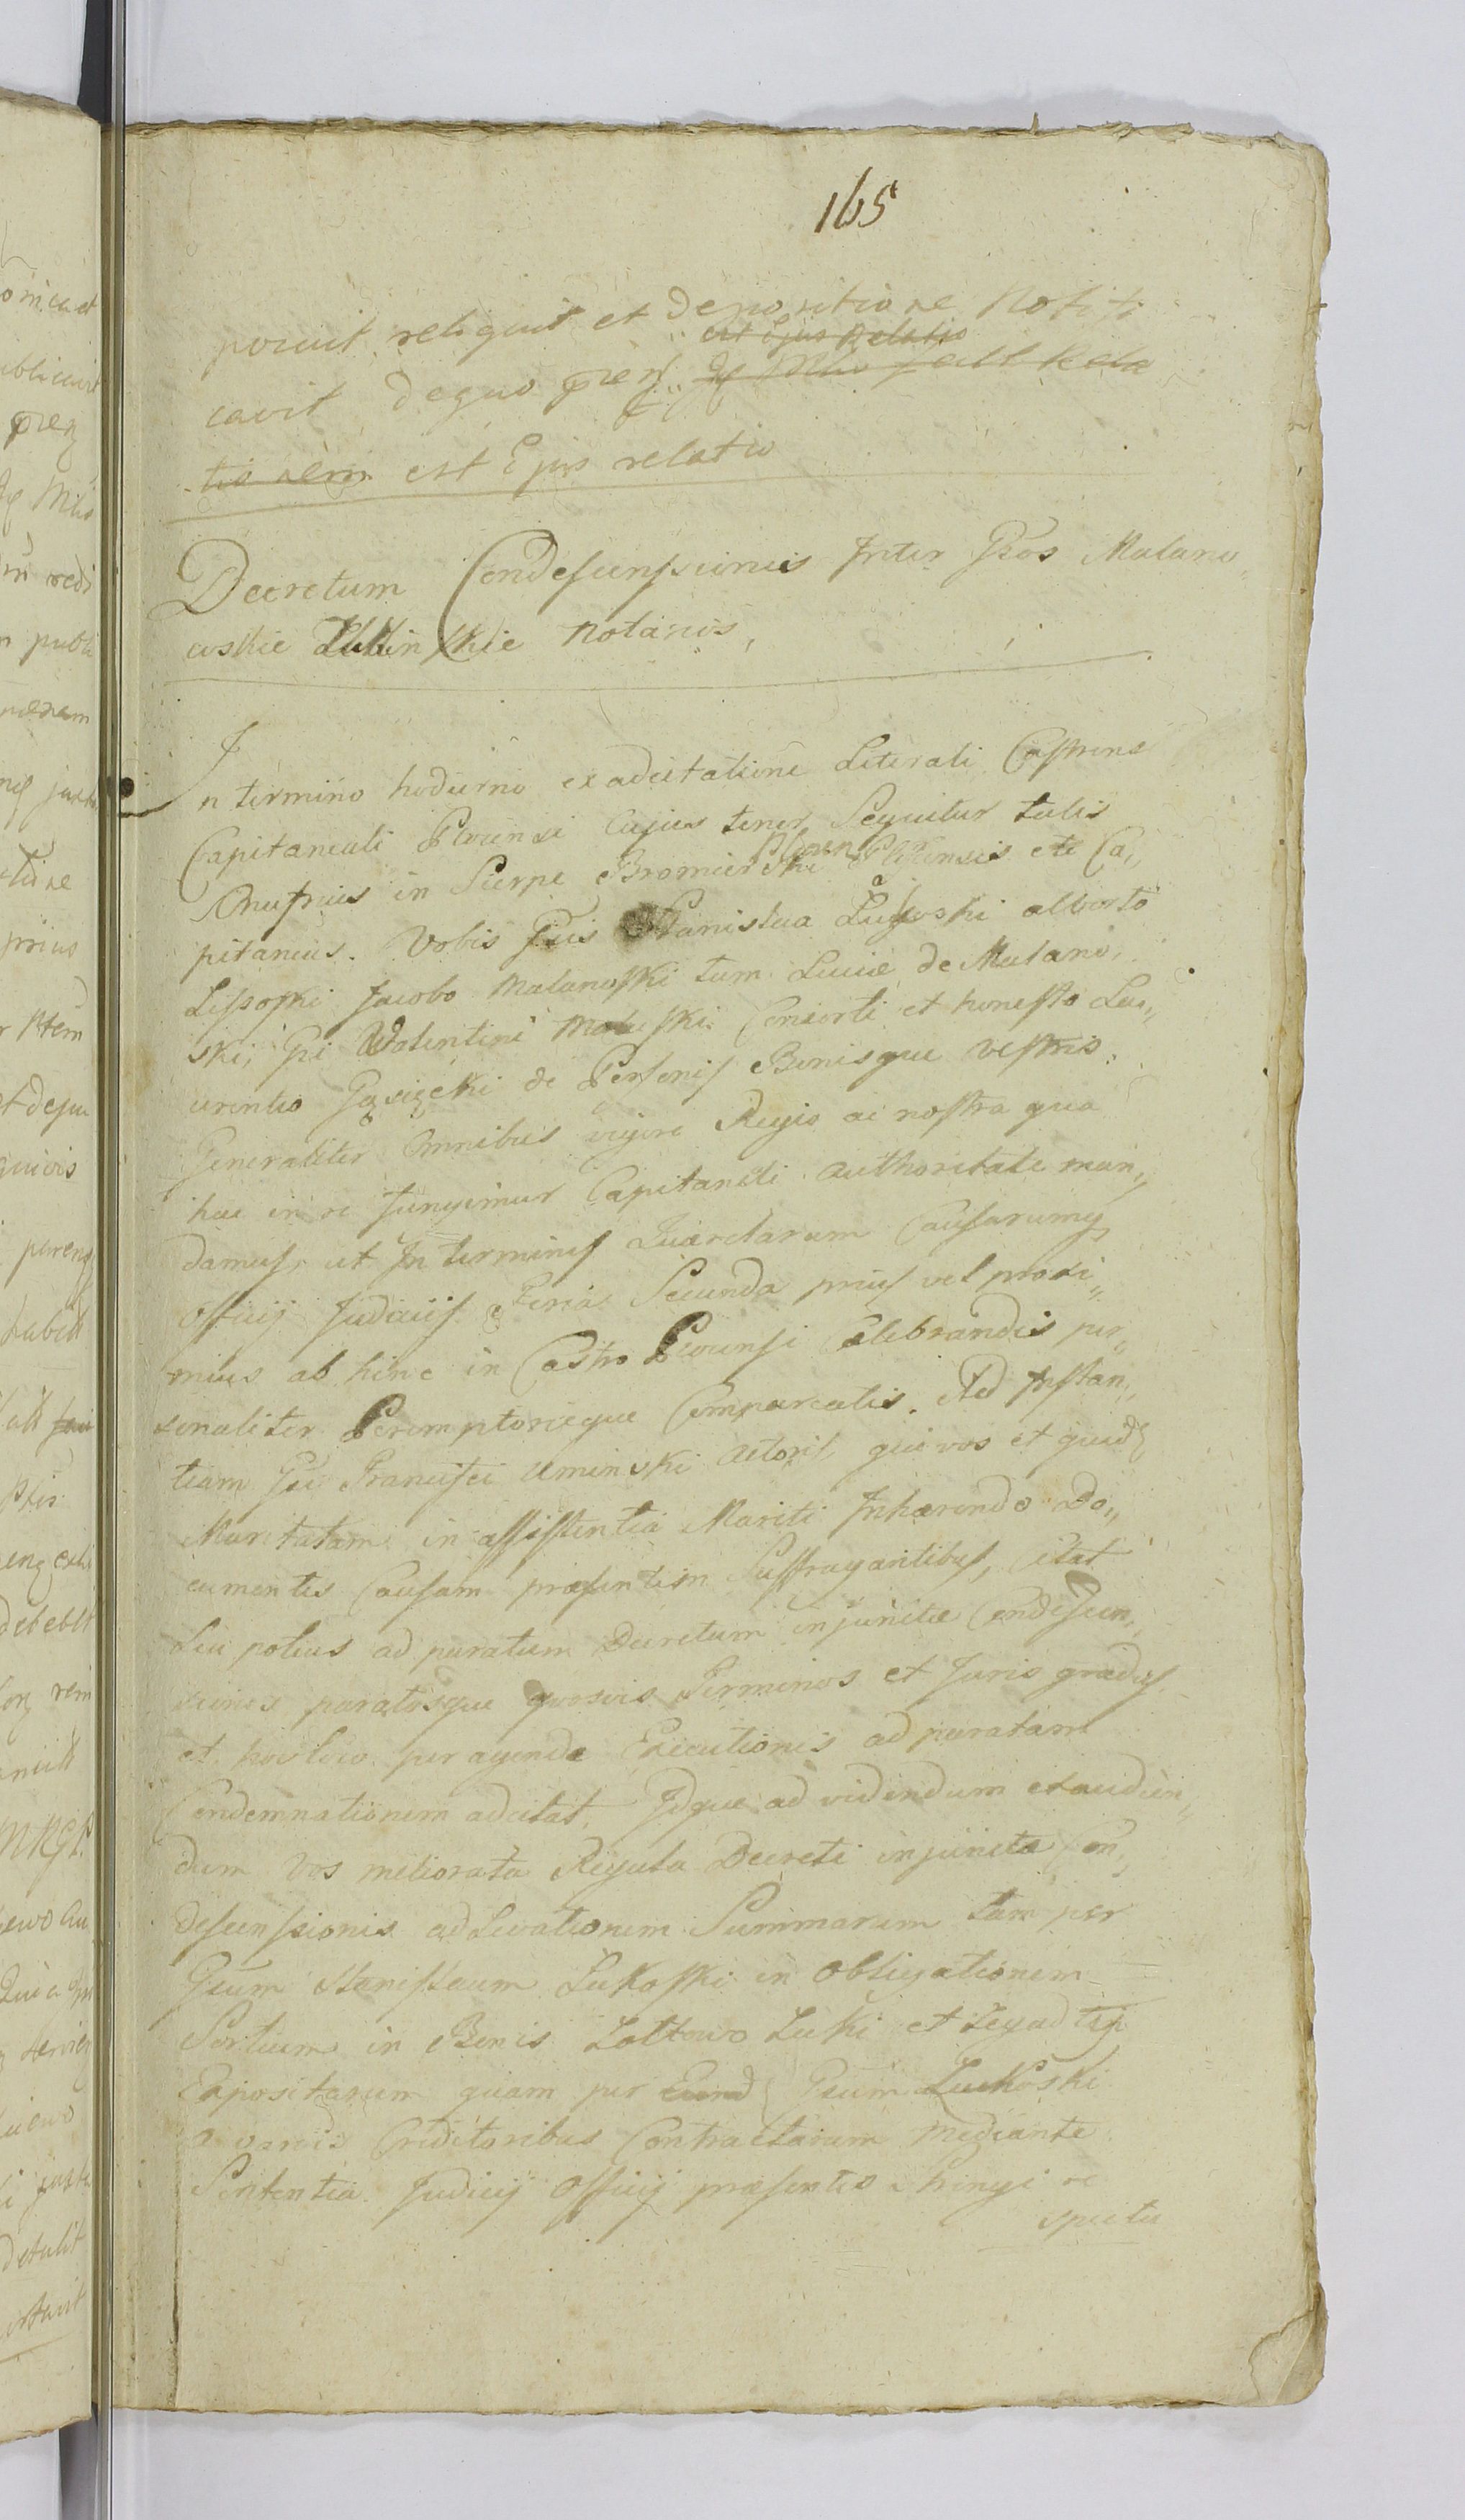 165
posuit reliquit et depositione Notifi
est Ejus Relatio
cavit de quo prens Mlis fecit Rela
tionem est Ejus relatio
Decretum Condescensionis Inter Gsos Malano„
wskie notarios,
In termino hodierno ex adcitatione Literali Castrens
Capitaneali Plocensi Cujus tenor Sequitur talis
Onufrius in Sierpc Bromierski Plocen Plocensis etc Ca„
pitaneus. Vobis Gsis Stanislao Lukoski Alberto
Lissoski Jacobo Malanoski tum Lucie de Malano„
ski, Gsi Walentini Consorti et honesto Lau„
urentio Gąsięcki de Personis Bonisque vestris
Generaliter Omnibus vigore Regia ac nostra qua
hac in re fungimur Capitaneali authoritate man„
damus, ut In terminis Querelarum Causarumq
Officij Judiciis Feria Secunda prius vel proxi„
mius ab hinc in Castro Plocensi Celebrandis per„
sonaliter Peremptorieque Compareatis. Ad Instan„
tiam Gsi Francisci Uminski Actoris qui vos et quid
Maritatam in assistentia Mariti Inhaerendo Do„
cumentis Causam praesentem Suffragantibus, Citat
Seu potius ad paratum Decretum injuncte Condescen„
sionis paratosque quosvis Terminos et Juris gradus
et hoc loco peragende Executionis ad paratam
Condemnationem adcitat, Idque ad videndum et audien„
dum Vos meliorata Regula Decreti injuncta Con„
descensionis ad Levationem Summarum tam per
Gsum Stanislaum Lukoski in Obligationem
Sortium in Bonis Zołtowo Luki et
Expositarum quam per Eund Gsum Lukoski
a variis Creditoribus Contractarum mediante
Sententia Judicij Officij praesentis Astringi re
spectu